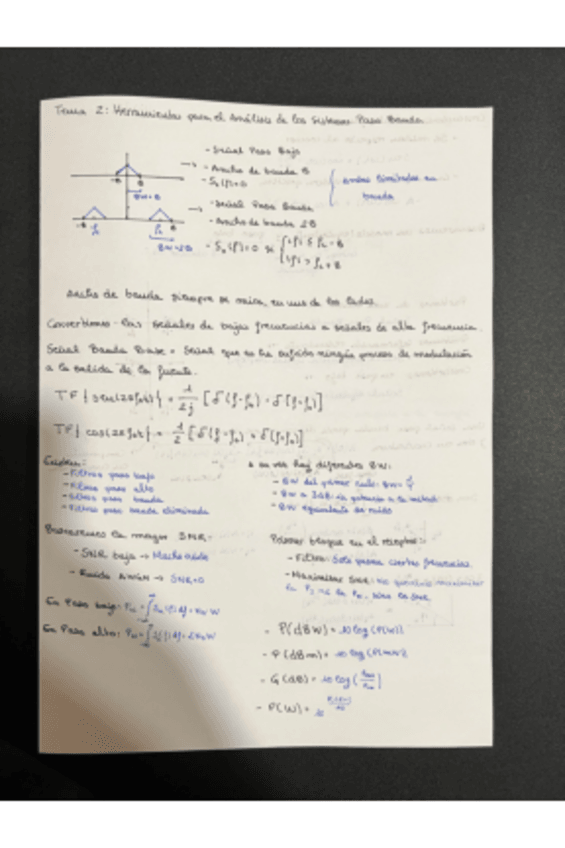 Tema 2: Herramientas para el Análisis de los Sistemas Paso Banda
- Señal Paso Bajo
- Ancho de banda B
- Sx(f)=0
-B B
BW=B
ambas limitadas en
banda
- Señal Paso Banda
- Ancho de banda 2B
- Sx(f)=0 si { |f| ≤ fc-B
|f| > fc+B
-B fc
fc B
BW=2B
Ancho de banda siempre se mira en uno de los lados.
Convertimos las señales de bajas frecuencias a señales de alta frecuencia.
Señal Banda Base = Señal que no ha sufrido ningún proceso de modulación
a la salida de la fuente.
TF{sen(2πf0t)} = 1/2j [δ(f-f0) - δ(f+f0)]
TF{cos(2πf0t)} = 1/2 [δ(f-f0) + δ(f+f0)]
Existen:
- Filtros paso bajo
- Filtros paso alto
- Filtros paso banda
- Filtros paso banda eliminada
A su vez hay diferentes BW:
- BW del primer nulo: BW=
- BW a 3dB: la potencia a la mitad
- BW equivalente de ruido
Buscaremos la mayor SNR:
- SNR baja → Mucho ruido
- Ruido AWGN → SNR=0
En Paso bajo: PN =
En Paso alto: PN =
Primer bloque en el receptor:
- Filtro: Solo pasan ciertas frecuencias.
- Maximizar SNR: No queremos maximizar
la PS ni la PN, sino la SNR
- P(dBW) = 10 log(P(W))
- P(dBm) = 10 log(P(mW))
- G(dB) = 10 log( )
- P(W) = 10^